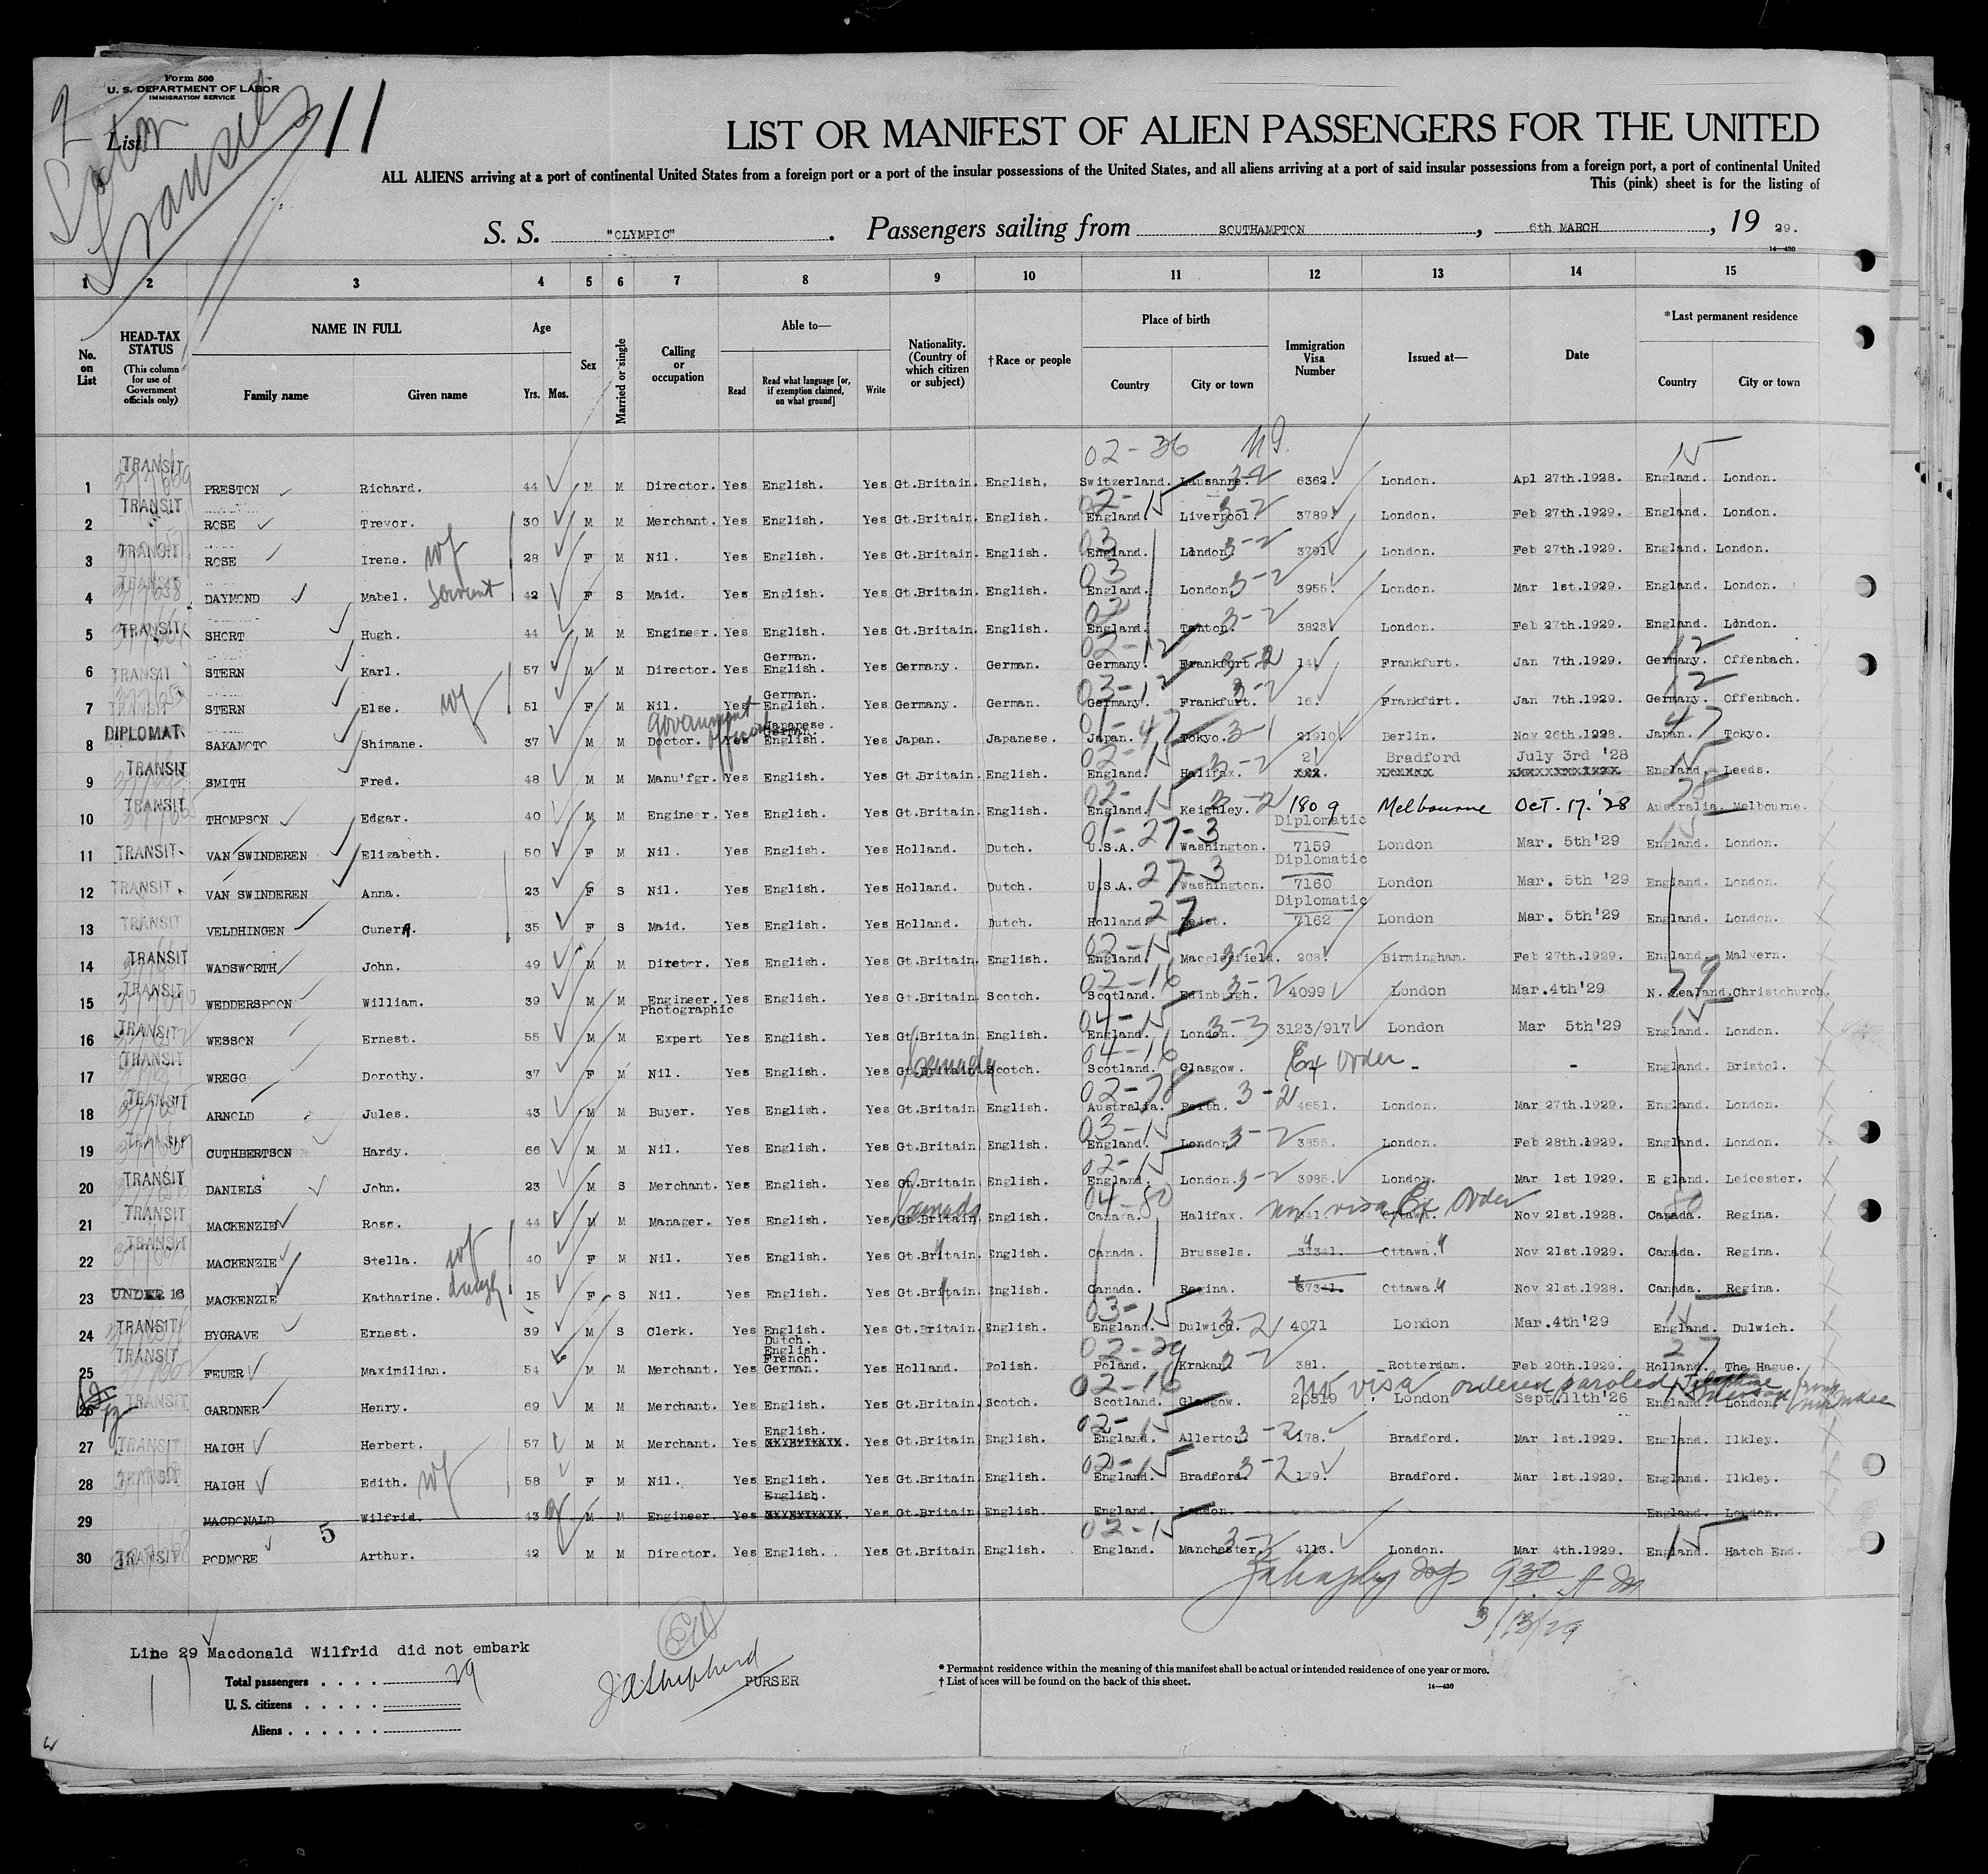 Form 500
U. S. DEPARTMENT OF LABOR
IMMIGRATION SERVICE
2
List 11
Transit
LIST OR MANIFEST OF ALIEN PASSENGERS FOR THE UNITED
ALL ALIENS arriving at a port of continental United States from a foreign port or a port of the insular possessions of the United States, and all aliens arriving at a port of said insular possessions from a foreign port, a port of continental United
This (pink) sheet is for the listing of
S. S. "OLYMPIC". Passengers sailing from SOUTHAMPTON, 6th MARCH, 19 29.
14—430
1 2 3 4 5 6 7 8 9 10 11 12 13 14 15
No. on List
HEAD-TAX STATUS (This column for use of Government officials only)
NAME IN FULL
Family name Given name
Age
Yrs. Mos.
Sex
Married or single
Calling or occupation
Able to—
Read Read what language [or, if exemption claimed, on what ground] Write
Nationality. (Country of which citizen or subject)
†Race or people
Place of birth
Country City or town
Immigration Visa Number
Issued at—
Date
*Last permanent residence
Country City or town
02-36 15
1 TRANSIT PRESTON Richard. 44 M M Director. Yes English. Yes Gt.Britain. English. Switzerland. Lausanne. 6362 London. Apl 27th.1928. England. London.
02-15 3-2
2 TRANSIT ROSE Trevor. 30 M M Merchant. Yes English. Yes Gt.Britain. English. England. Liverpool. 3789 London. Feb 27th.1929. England. London.
03 3-2
3 TRANSIT ROSE Irene. wf 28 F M Nil. Yes English. Yes Gt.Britain. English. England. London. 3791 London. Feb 27th.1929. England. London.
03 3-2
4 TRANSIT DAYMOND Mabel. Servant 42 F S Maid. Yes English. Yes Gt.Britain. English. England. London. 3955. London. Mar 1st.1929. England. London.
02 3-2
5 TRANSIT SHORT Hugh. 44 M M Engineer. Yes English. Yes Gt.Britain. English. England. Tanton. 3823 London. Feb 27th.1929. England. London.
02-12 3-2 12
6 TRANSIT STERN Karl. 57 M M Director. Yes German. English. Yes Germany. German. Germany. Frankfurt. 14. Frankfurt. Jan 7th.1929. Germany. Offenbach.
03-12 3-2 12
7 TRANSIT STERN Else. wf 51 F M Nil. Yes German. English. Yes Germany. German. Germany. Frankfurt. 16. Frankfurt. Jan 7th.1929. Germany. Offenbach.
Government official
01-47 3-1 47
8 DIPLOMAT. SAKAMOTO Shimane. 37 M M Doctor. Yes Japanese. German. English. Yes Japan. Japanese. Japan. Tokyo. 21910 Berlin. Nov 26th.1928. Japan. Tokyo.
02-15 3-2 15
9 TRANSIT SMITH Fred. 48 M M Manu'fgr. Yes English. Yes Gt.Britain. English. England. Halifax. 2 Bradford July 3rd '28 England. Leeds.
02-15 3-2 78
10 TRANSIT THOMPSON Edgar. 40 M M Engineer. Yes English. Yes Gt.Britain. English. England. Keighley. 1809 Melbourne Oct. 17. '28 Australia. Melbourne.
01-27-3 15
11 TRANSIT VAN SWINDEREN Elizabeth. 50 F M Nil. Yes English. Yes Holland. Dutch. U.S.A. Washington. Diplomatic 7159 London Mar. 5th '29 England. London.
27-3
12 TRANSIT VAN SWINDEREN Anna. 23 F S Nil. Yes English. Yes Holland. Dutch. U.S.A. Washington. Diplomatic 7160 London Mar. 5th '29 England. London.
27
13 TRANSIT VELDHINGEN Cunera. 35 F S Maid. Yes English. Yes Holland. Dutch. Holland. Zeist. Diplomatic 7162 London Mar. 5th '29 England. London.
02-15 3-2
14 TRANSIT WADSWORTH John. 49 M M Diretor. Yes English. Yes Gt.Britain. English. England. Macclesfield. 208 Birmingham. Feb 27th.1929. England. Malvern.
02-16 3-2 79
15 TRANSIT WEDDERSPOON William. 39 M M Engineer. Yes English. Yes Gt.Britain. Scotch. Scotland. Edinburgh. 4099 London Mar.4th '29 N. Zealand. Christchurch.
04-15 3-3 15
16 TRANSIT WESSON Ernest. 55 M M Photographic Expert Yes English. Yes Gt.Britain. English. England. London. 3123/917 London Mar 5th '29 England. London.
Canada 04-16
17 TRANSIT WREGG Dorothy. 37 F M Nil. Yes English. Yes Gt.Britain. Scotch. Scotland. Glasgow. Ex Order - - England. Bristol.
02-78 3-2
18 TRANSIT ARNOLD Jules. 43 M M Buyer. Yes English. Yes Gt.Britain. English. Australia. Perth. 4651. London. Mar 27th.1929. England. London.
03-15 3-2
19 TRANSIT CUTHBERTSON Hardy. 66 M M Nil. Yes English. Yes Gt.Britain. English. England. London. 3855. London. Feb 28th.1929. England. London.
02-15 3-2
20 TRANSIT DANIELS John. 23 M S Merchant. Yes English. Yes Gt.Britain. English. England. London. 3985. London. Mar 1st 1929. E gland. Leicester.
Canada 04-80 no visa Ex Order 80
21 TRANSIT MACKENZIE Ross. 44 M M Manager. Yes English. Yes Gt.Britain. English. Canada. Halifax. Ottawa. Nov 21st.1928. Canada. Regina.
22 TRANSIT MACKENZIE Stella. wf 40 F M Nil. Yes English. Yes Gt.Britain. English. Canada. Brussels. Ottawa. Nov 21st.1929. Canada. Regina.
23 UNDER 16 MACKENZIE Katharine. daugh 15 F S Nil. Yes English. Yes Gt.Britain. English. Canada. Regina. Ottawa. Nov 21st.1928. Canada. Regina.
03-15 3-2 15
24 TRANSIT BYGRAVE Ernest. 39 M S Clerk. Yes English. Yes Gt.Britain. English. England. Dulwich. 4071 London Mar.4th '29 England. Dulwich.
02-29 3-2 27
25 TRANSIT FEUER Maximilian. 54 M M Merchant. Yes Dutch. English. French. German. Yes Holland. Polish. Poland. Krakau. 381. Rotterdam. Feb 20th.1929. Holland. The Hague.
02-16 no visa ordered paroled
26 TRANSIT GARDNER Henry. 69 M M Merchant. Yes English. Yes Gt.Britain. Scotch. Scotland. Glasgow. 20519 London Sept.11th '26 England. London.
02-15 3-2
27 TRANSIT HAIGH Herbert. 57 M M Merchant. Yes English. Yes Gt.Britain. English. England. Allerton. 178. Bradford. Mar 1st.1929. England. Ilkley.
02-15 3-2
28 TRANSIT HAIGH Edith. wf 58 F M Nil. Yes English. Yes Gt.Britain. English. England. Bradford. 179. Bradford. Mar 1st.1929. England. Ilkley.
29 MACDONALD Wilfrid. 43 M M Engineer. Yes English. Yes Gt.Britain. English. England. London. England. London.
5 02-15 3-2 15
30 TRANSIT PODMORE Arthur. 42 M M Director. Yes English. Yes Gt.Britain. English. England. Manchester. 4113. London. Mar 4th.1929. England. Hatch End.
930 A M
3/13/29
Line 29 Macdonald Wilfrid did not embark
Total passengers . . . . 29
U. S. citizens . . . . .
Aliens . . . . . .
J A Shepherd
PURSER
* Permanent residence within the meaning of this manifest shall be actual or intended residence of one year or more.
† List of races will be found on the back of this sheet.
14—430